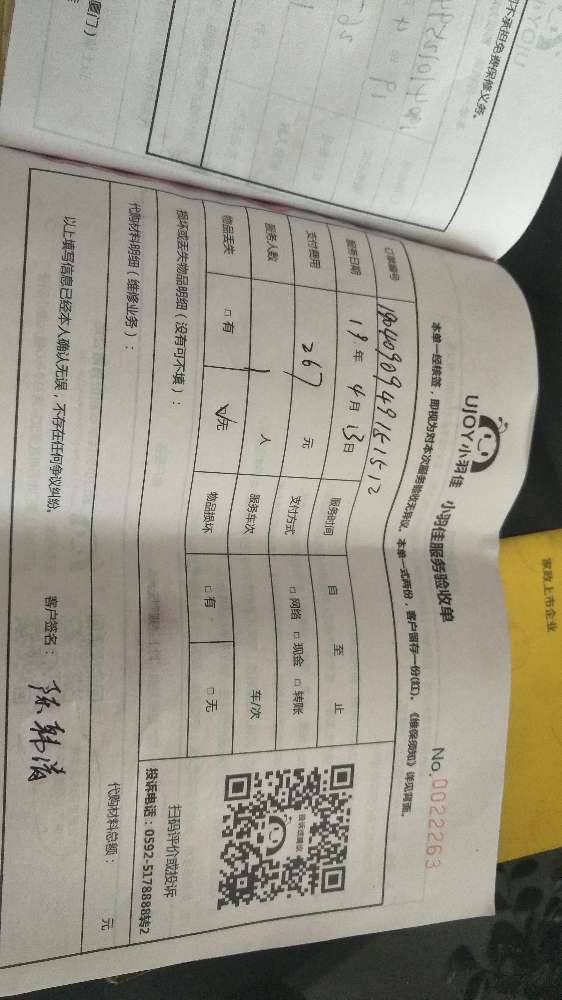 不承担免费保修义务。
厦门）
家政上市企业
UJOY小羽佳 小羽佳服务验收单
No. 0022263
本单一经核签，即视为对本次服务验收无异议。本单一式两份，客户留存一份(红)。《维保须知》详见背面。
订单编号 190409094915151512
服务日期 19年 4月 13日 服务时间 自 至 止
支付费用 267 元 支付方式 □网络 □现金 □转账
服务人数 1 人 服务车次 车/次
物品丢失 □有 ☑无 物品损坏 □有 □无
投诉或建议
扫码评价或投诉
投诉电话：0592-5178888转2
损坏或丢失物品明细（没有可不填）：
代购材料明细（维修业务）：
代购材料总额： 元
以上填写信息已经本人确认无误，不存在任何争议纠纷。 客户签名：